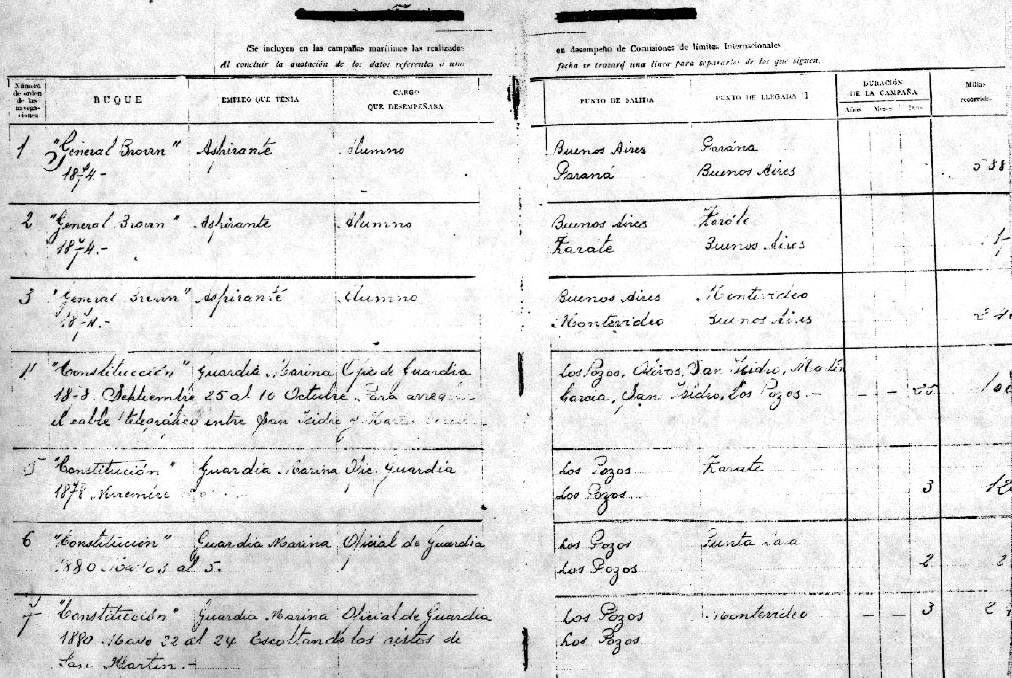 (Se incluyen en las campañas marítimas las realizadas en desempeño de Comisiones de límites Internacionales
Al concluir la anotación de los datos referentes a una fecha se trazará una línea para separarlas de los que siguen.
Número de orden de las navegaciones BUQUE EMPLEO QUE TENIA CARGO QUE DESEMPEÑABA PUNTO DE SALIDA PUNTO DE LLEGADA DURACIÓN DE LA CAMPAÑA Años Meses Días Millas
1 "General Brown" Aspirante Alumno Buenos Aires Parána
1874.- Paraná Buenos Aires 588
2 "General Brown" Aspirante Alumno Buenos Aires
1874.- Zarate Buenos Aires
3 "General Brown" Aspirante Alumno Buenos Aires Montevideo
1874.- Montevideo Buenos Aires
4 "Constitucción" Guardia Marina Ofic de Guardia Los Pozos, Olivos, San Isidro, Martin
Septiembre 25 al 10 Octubre. Para García, San Isidro, Los Pozos -
el cable telegráfico entre San Isidro y
5 "Constitución" Guardia Marina Ofic. Guardia Los Pozos Zarate
1878 Los Pozos 3
6 "Constitución" Guardia Marina Oficial de Guardia Los Pozos Punta
1880 al 5. Los Pozos 2
7 "Constitución" Guardia Marina Oficial de Guardia Los Pozos Montevideo - - 3
1880 Mayo 22 al 24 Escoltando los restos de Los Pozos
San Martin.-